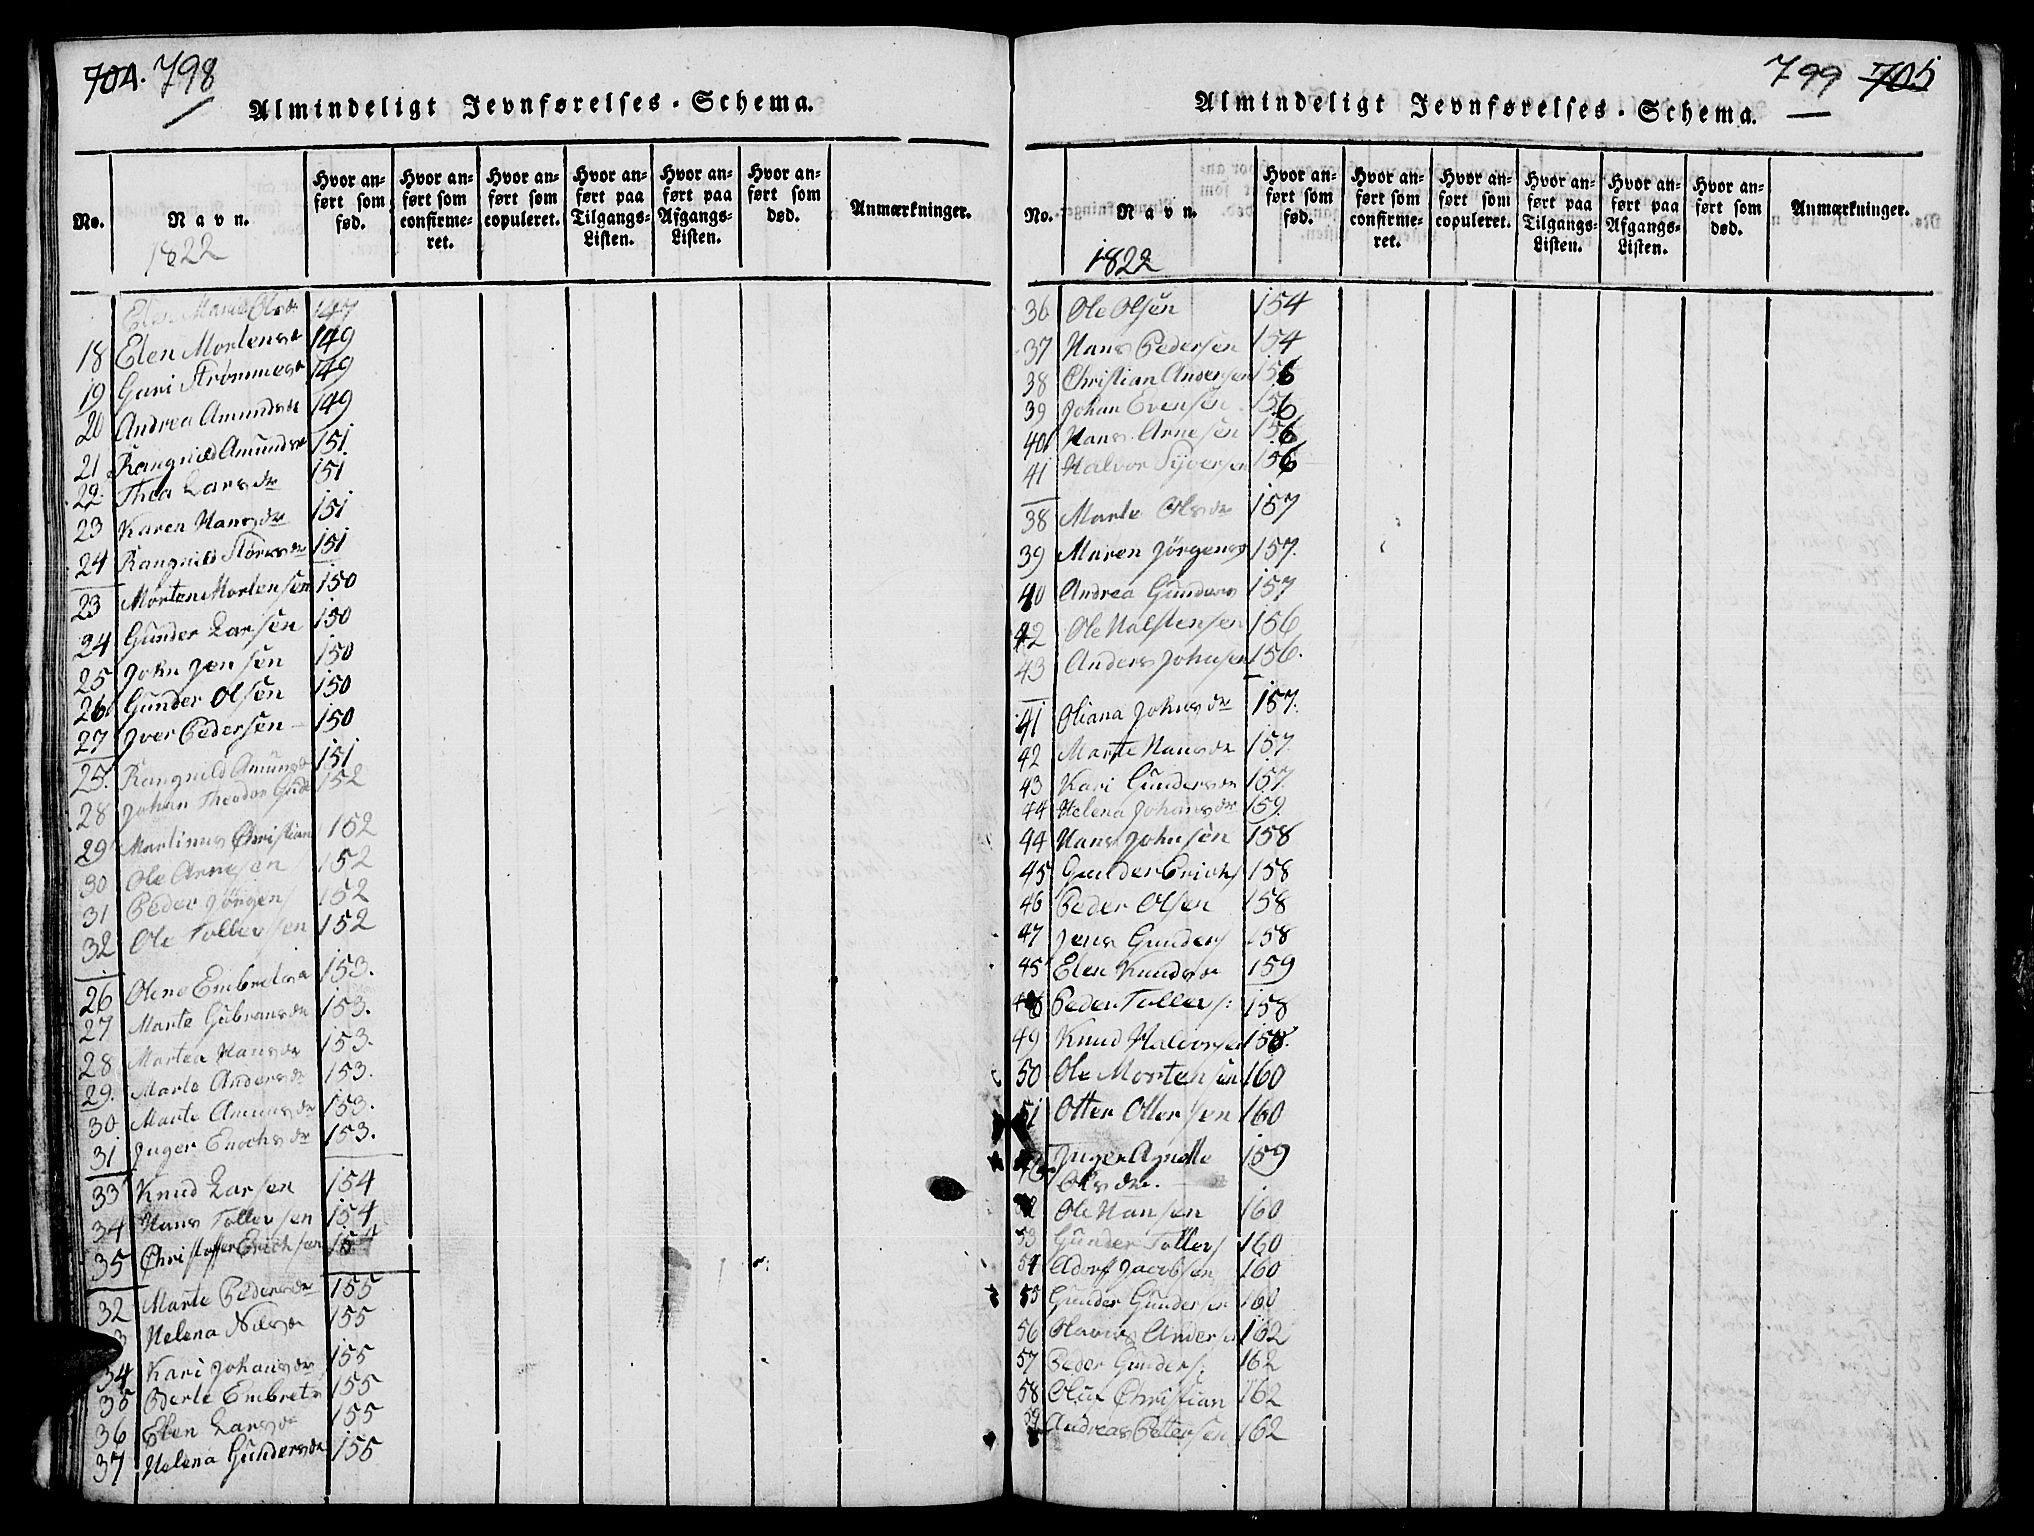 704. 798
Almindeligt Jevnførelses-Schema.
No.
Navn.
1822
Hvor anført som fød.
Hvor anført som confirmeret.
Hvor anført som copuleret.
Hvor anført paa Tilgangs-Listen.
Hvor anført paa Afgangs-Listen.
Hvor anført som død.
Anmærkninger.
Elen Marie Olsdr 147
18 Elen Mortensdr 149
19 Guri 149
20 Andrea Amundsdr 149
21 Rangnild Amundsdr 151.
22. Thea Larsdr 151
23 Karen Hansdr 151
24 Rangnild 151
23 Morten Mortensen 150
24 Gunder Larsen 150
25 John Jensen 150
26 Gunder Olsen 150
27 Iver Pedersen 150
25. Rangnild Amunsdr 151
28 Johan Theodor 152
29 Martinus Christian 152
30 Ole Arnesen 152
31 Peder Jørgens 152
32 Ole Tollersen 152
26 Olene Embretsdr 153.
27 Marte Gubransdr 153.
28 Martea Hansdr 153.
29. Marte Andersdr 153.
30 Marte Amunsdr 153.
31 Inger Enochsdr 153.
33 Knud Larsen 154
34 Hans Tollersen 154
35 Christoffer Erichsen 154
32 Marte Pedersdr 155
3 Helena Nilsdr 155
34 Kari Johansdr 155
35 Berte Embretsdr 155
36 Elen Larsdr 155
37 Helena Gundersdr 155
799 705
Almindeligt Jevnførelses-Schema.
No.
Navn.
1822
Hvor anført som fød.
Hvor anført som confirmeret.
Hvor anført som copuleret.
Hvor anført paa Tilgangs-Listen.
Hvor anført paa Afgangs-Listen.
Hvor anført som død.
Anmærkninger.
36 Ole Olsen 154
37 Hans Pedersen 154
38 Christian Andersen 156
39 Johan Evensen 156
40 Hans Arnesen 156
41 Halvor Syversen 156
38 Marte Olsdr 157
39 Maren Jørgens 157.
40 Andrea Gunders 157
42 Ole Halstensen 156
43 Anders Johnsen 156.
41 Oliana Johnsdr 157.
42 Marte Hansdr 157.
43 Kari Gundersdr 157.
44 Helena Johansdr 159.
44 Hans Johnsen 158
45 Gunder Erichs 158
46 Peder Olsen 158
47 Jens Gunders 158
45 Elen Knudsdr 159
48 Peder Tollers: 158
49 Knud Halvorsen 158.
50 Ole Mortensen 160
51 Otter Ottersen 160
46 Inger Agnette 159
Olsdr.
52 Ole Hansen 160
53 Gunder Tollers 160
54 Adorf Jacobsen 160
55 Gunder Gundersen 160
56 Olavus Anders 162
57 Peder Gunders: 162
58 Oluf Christian 162
59 Andreas Pettersen 162